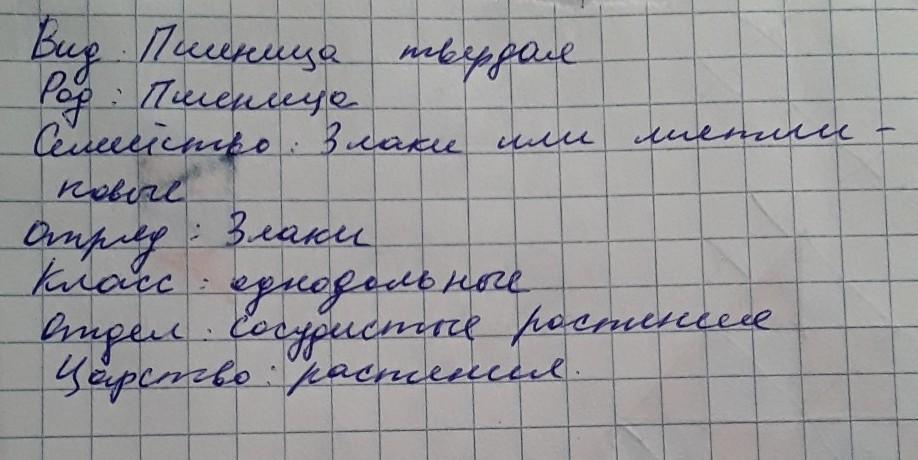 Вид: Пшеница твердая
Род: Пшеница
Семейство: Злаки или мятли-
ковые
Отряд: Злаки
Класс: однодольные
Отдел: сосудистые растения
Царство: растения.